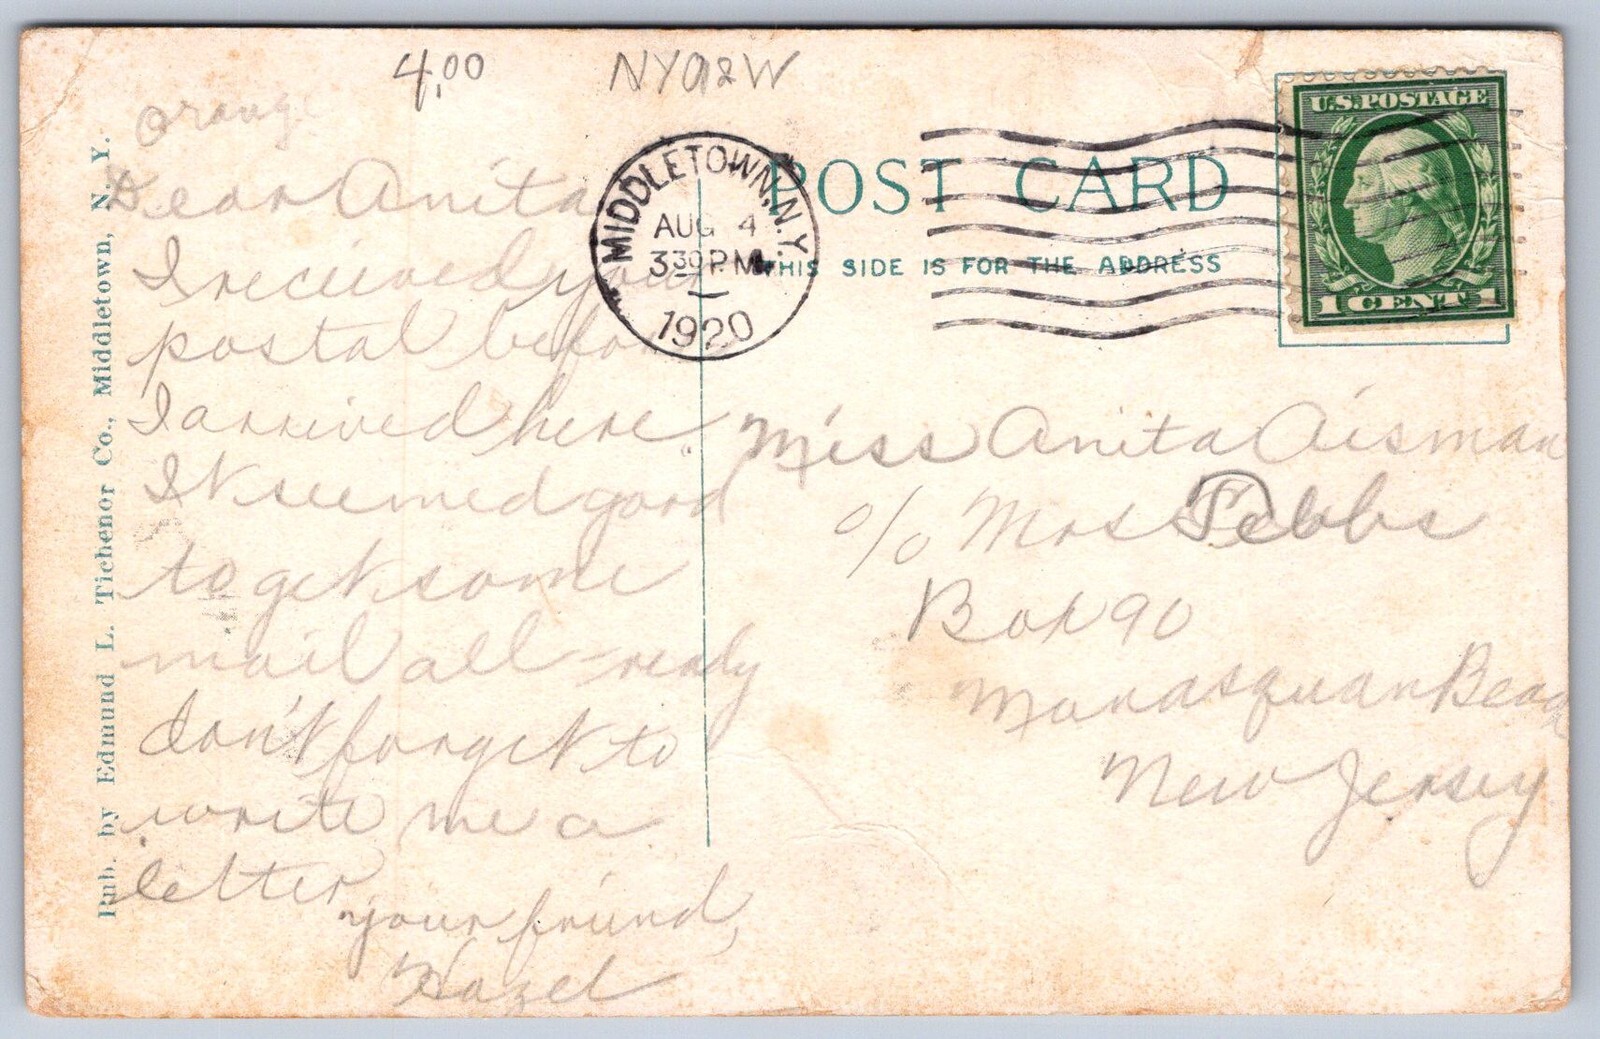 4.00
NYO&W
Orange
Pub. by Edmund L. Tichenor Co., Middletown, N. Y.
MIDDLETOWN, N.Y.
AUG 4
3 30 P.M.
1920
POST CARD
THIS SIDE IS FOR THE ADDRESS
U.S. POSTAGE
1 CENT 1
Dear Anita
I received your
postal before
I arrived here.
It seemed good
to get some
mail all-ready
don't forget to
write me a
letter
your friend,
Hazel
Miss Anita Aisman
c/o Mrs Tebbs
Box 90
Manasquan Beach
New Jersey